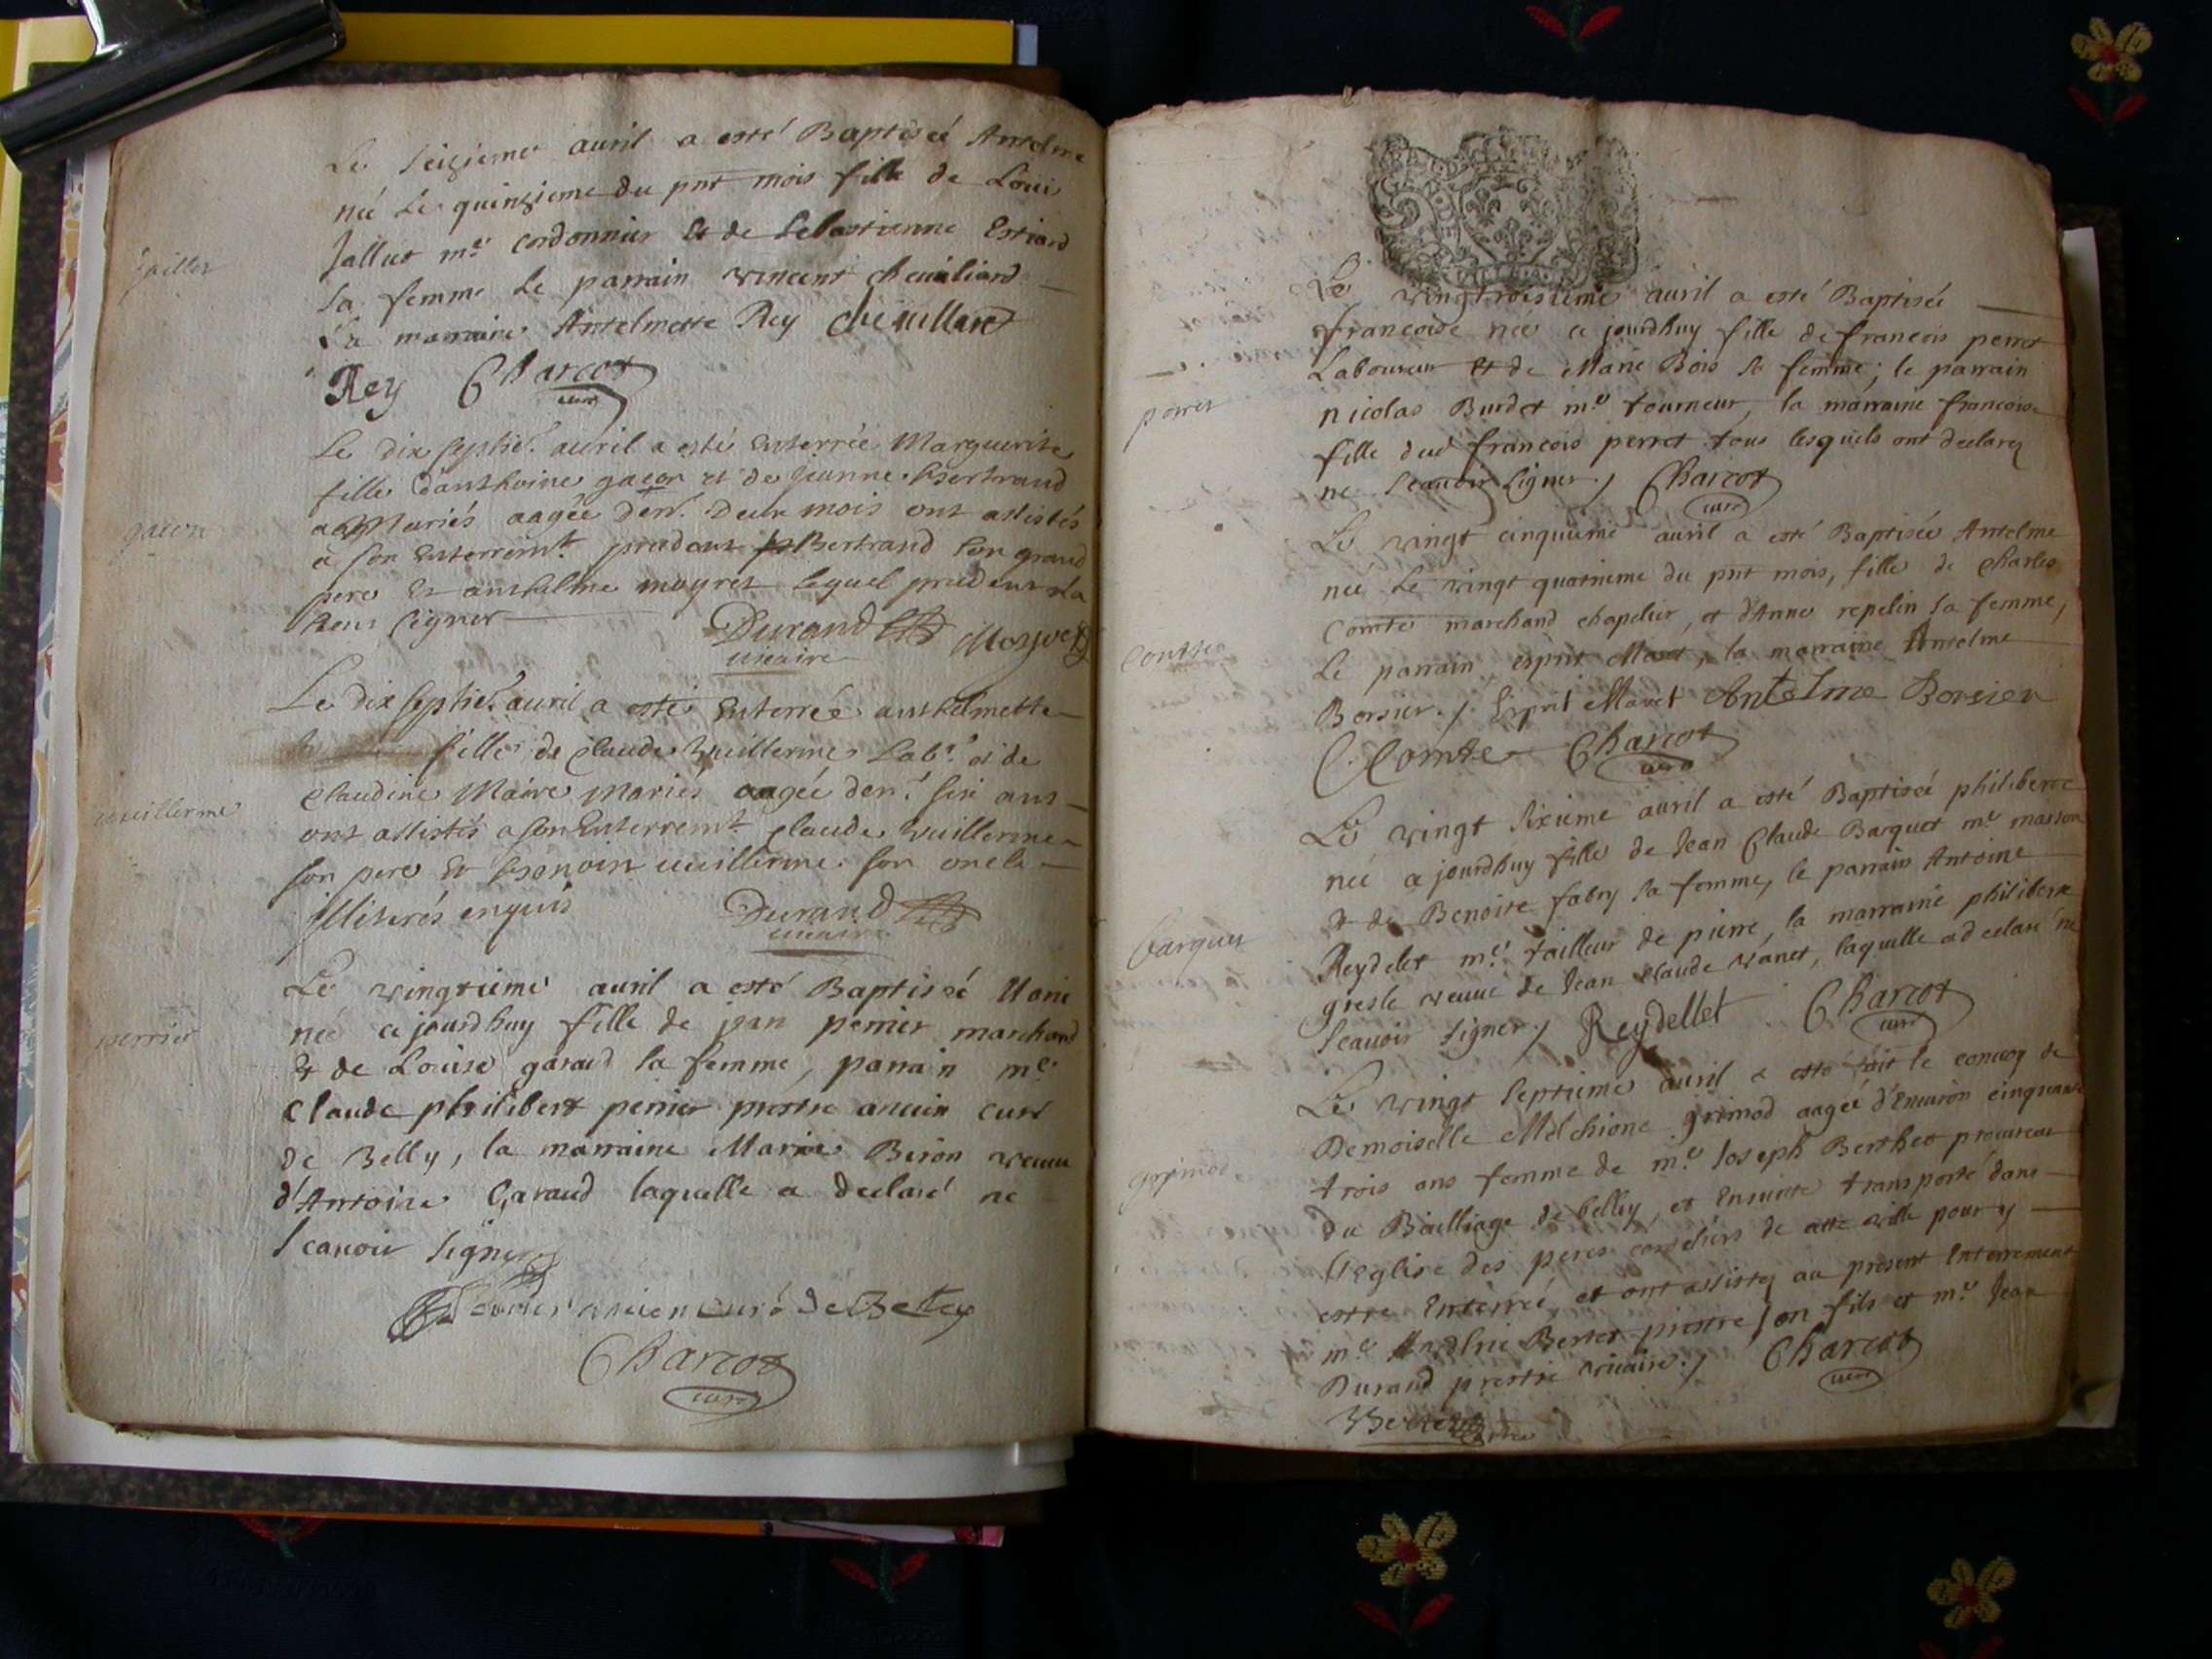 Le seizieme auril a esté Baptisée Antelme
née Le quinzieme du pnt mois fille de Loui
Jallut me cordonnier et de Sebastienne Estiard
sa femme Le parrain vincent chevaliard
La marraine Antelmette Rey chevillard
Rey Charcot
curé
Le dix septie. auril a esté Enterrée Marguerite
fille d'anthoine gacon et de Jeanne Bertrand
gacon
mariés aagée den. Deux mois ont assistés
a son Enterremt. prudent Bertrand son grand
pere Et anthelme moyret lequel prudent n'a
sceu signer Durand Moyret
vicaire
Le dix septie. auril a esté Enterrée anthelmette
fille de claude Vuillerme Labr. et de
vuillerme
claudine Maire Mariés aagée den. six ans
ont assistés a son Enterremt. claude Vuillerme
son pere Et benoist vuillerme son oncle
illiterés enquis Durand
vicaire
Le vingtieme auril a esté Baptisée Marie
perrier
née ce jourdhuy fille de jean perrier marchand
Et de Louise garaud sa femme, parrain me
claude philibert perrier prestre ancien curé
de Belly, la marraine Marie Biron veuue
d'Antoine Garaud laquelle a declaré ne
scauoir signer
perrier ancien curé de Beley
Charcot
curé
Le vingtroisieme auril a esté Baptisée
francoise née ce jourdhuy fille de francois perret
Laboureur et de Marie Bois sa femme; le parrain
perret
nicolas Burdet me tourneur, la marraine francoise
fille dud francois perret tous lesquels ont declarez
ne scauoir signer./ Charcot
curé
Le vingt cinquieme auril a esté Baptisée Antelme
née Le vingt quatrieme du pnt mois, fille de Charles
Comte
Comte marchand chapelier, et d'Anne repelin sa femme,
Le parrain esprit Maret, la marraine Antelme
Borsier./. Esprit Maret Antelme Borsier
C. Comte Charcot
curé
Le vingt sixieme auril a esté Baptisée philiberte
née ce jourdhuy fille de Jean Claude Barquet me masson
Barquet
et de Benoite fabry sa femme, le parrain Antoine
Reydelet me tailleur de pierre, la marraine philiberte
gresle veuue de Jean claude vanet, laquelle a declaré ne
scauoir signer./ Reydellet Charcot
curé
Le vingt septieme auril a esté fait le conuoy de
Demoiselle Melchione grimod aagée d'Enuiron cinquante
grimod
trois ans femme de me Joseph Berthet procureur
du Bailliage de belley, et Ensuitte transporté dans
l'Eglise des peres cordeliers de cette ville pour y
estre Enterrée, et ont assistez au present Enterrement
me Bertet prestre son fils et me Jean
Durand prestre vicaire./ Charcot
curé